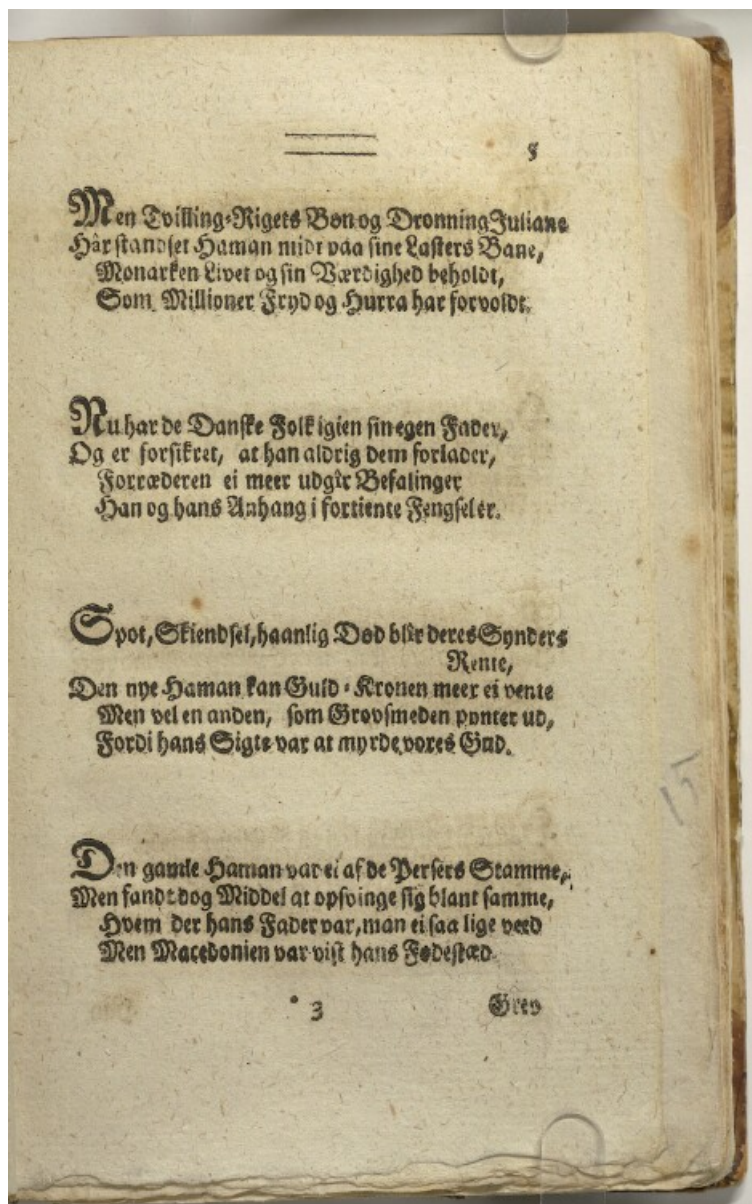 5
Men Tvilling-Rigets Bøn og Dronning Juliane
Hâr standset Haman midt paa sine Lasters Bane,
Monarken Livet og sin Værdighed beholdt,
Som Millioner Fryd og Hurra har forvoldt.
Nu har de Danske Folk igien sin egen Fader,
Og er forsikret, at han aldrig dem forlader,
Forræderen ei meer udgîr Befalinger
Han og hans Anhang i fortiente Fengseler.
Spot, Skiendsel, haanlig Død blîr deres Synders
Rente,
Den nye Haman kan Guld-Kronen meer ei vente
Men vel en anden, som Grovsmeden pynter ud,
Fordi hans Sigte var at myrde vores Gud.
Den gamle Haman var ei af de Persers Stamme,
Men fandt dog Middel at opsvinge sig blant samme,
Hvem der hans Fader var, man ei saa lige veed
Men Macedonien var vist hans Fødestæd.
* 3 Grev
15